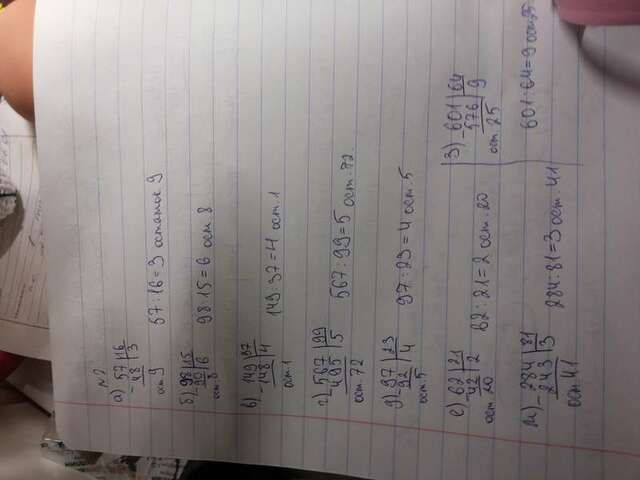 №2
а) 57 | 16
- 48 | 3
ост 9 57 : 16 = 3 остаток 9
б) 98 | 15
- 90 | 6
ост. 8 98 : 15 = 6 ост. 8
в) 149 | 37
- 148 | 4
ост. 1 149 : 37 = 4 ост. 1
г) 567 | 99
- 495 | 5
ост. 72 567 : 99 = 5 ост. 72.
д) 97 | 23
- 92 | 4
ост. 5 97 : 23 = 4 ост. 5
е) 62 | 21
- 42 | 2
ост. 20 62 : 21 = 2 ост. 20
ж) - 284 | 81
243 | 3
ост. 41 284 : 81 = 3 ост. 41
З) - 601 | 64
576 | 9
ост. 25
601 : 64 = 9 ост 25